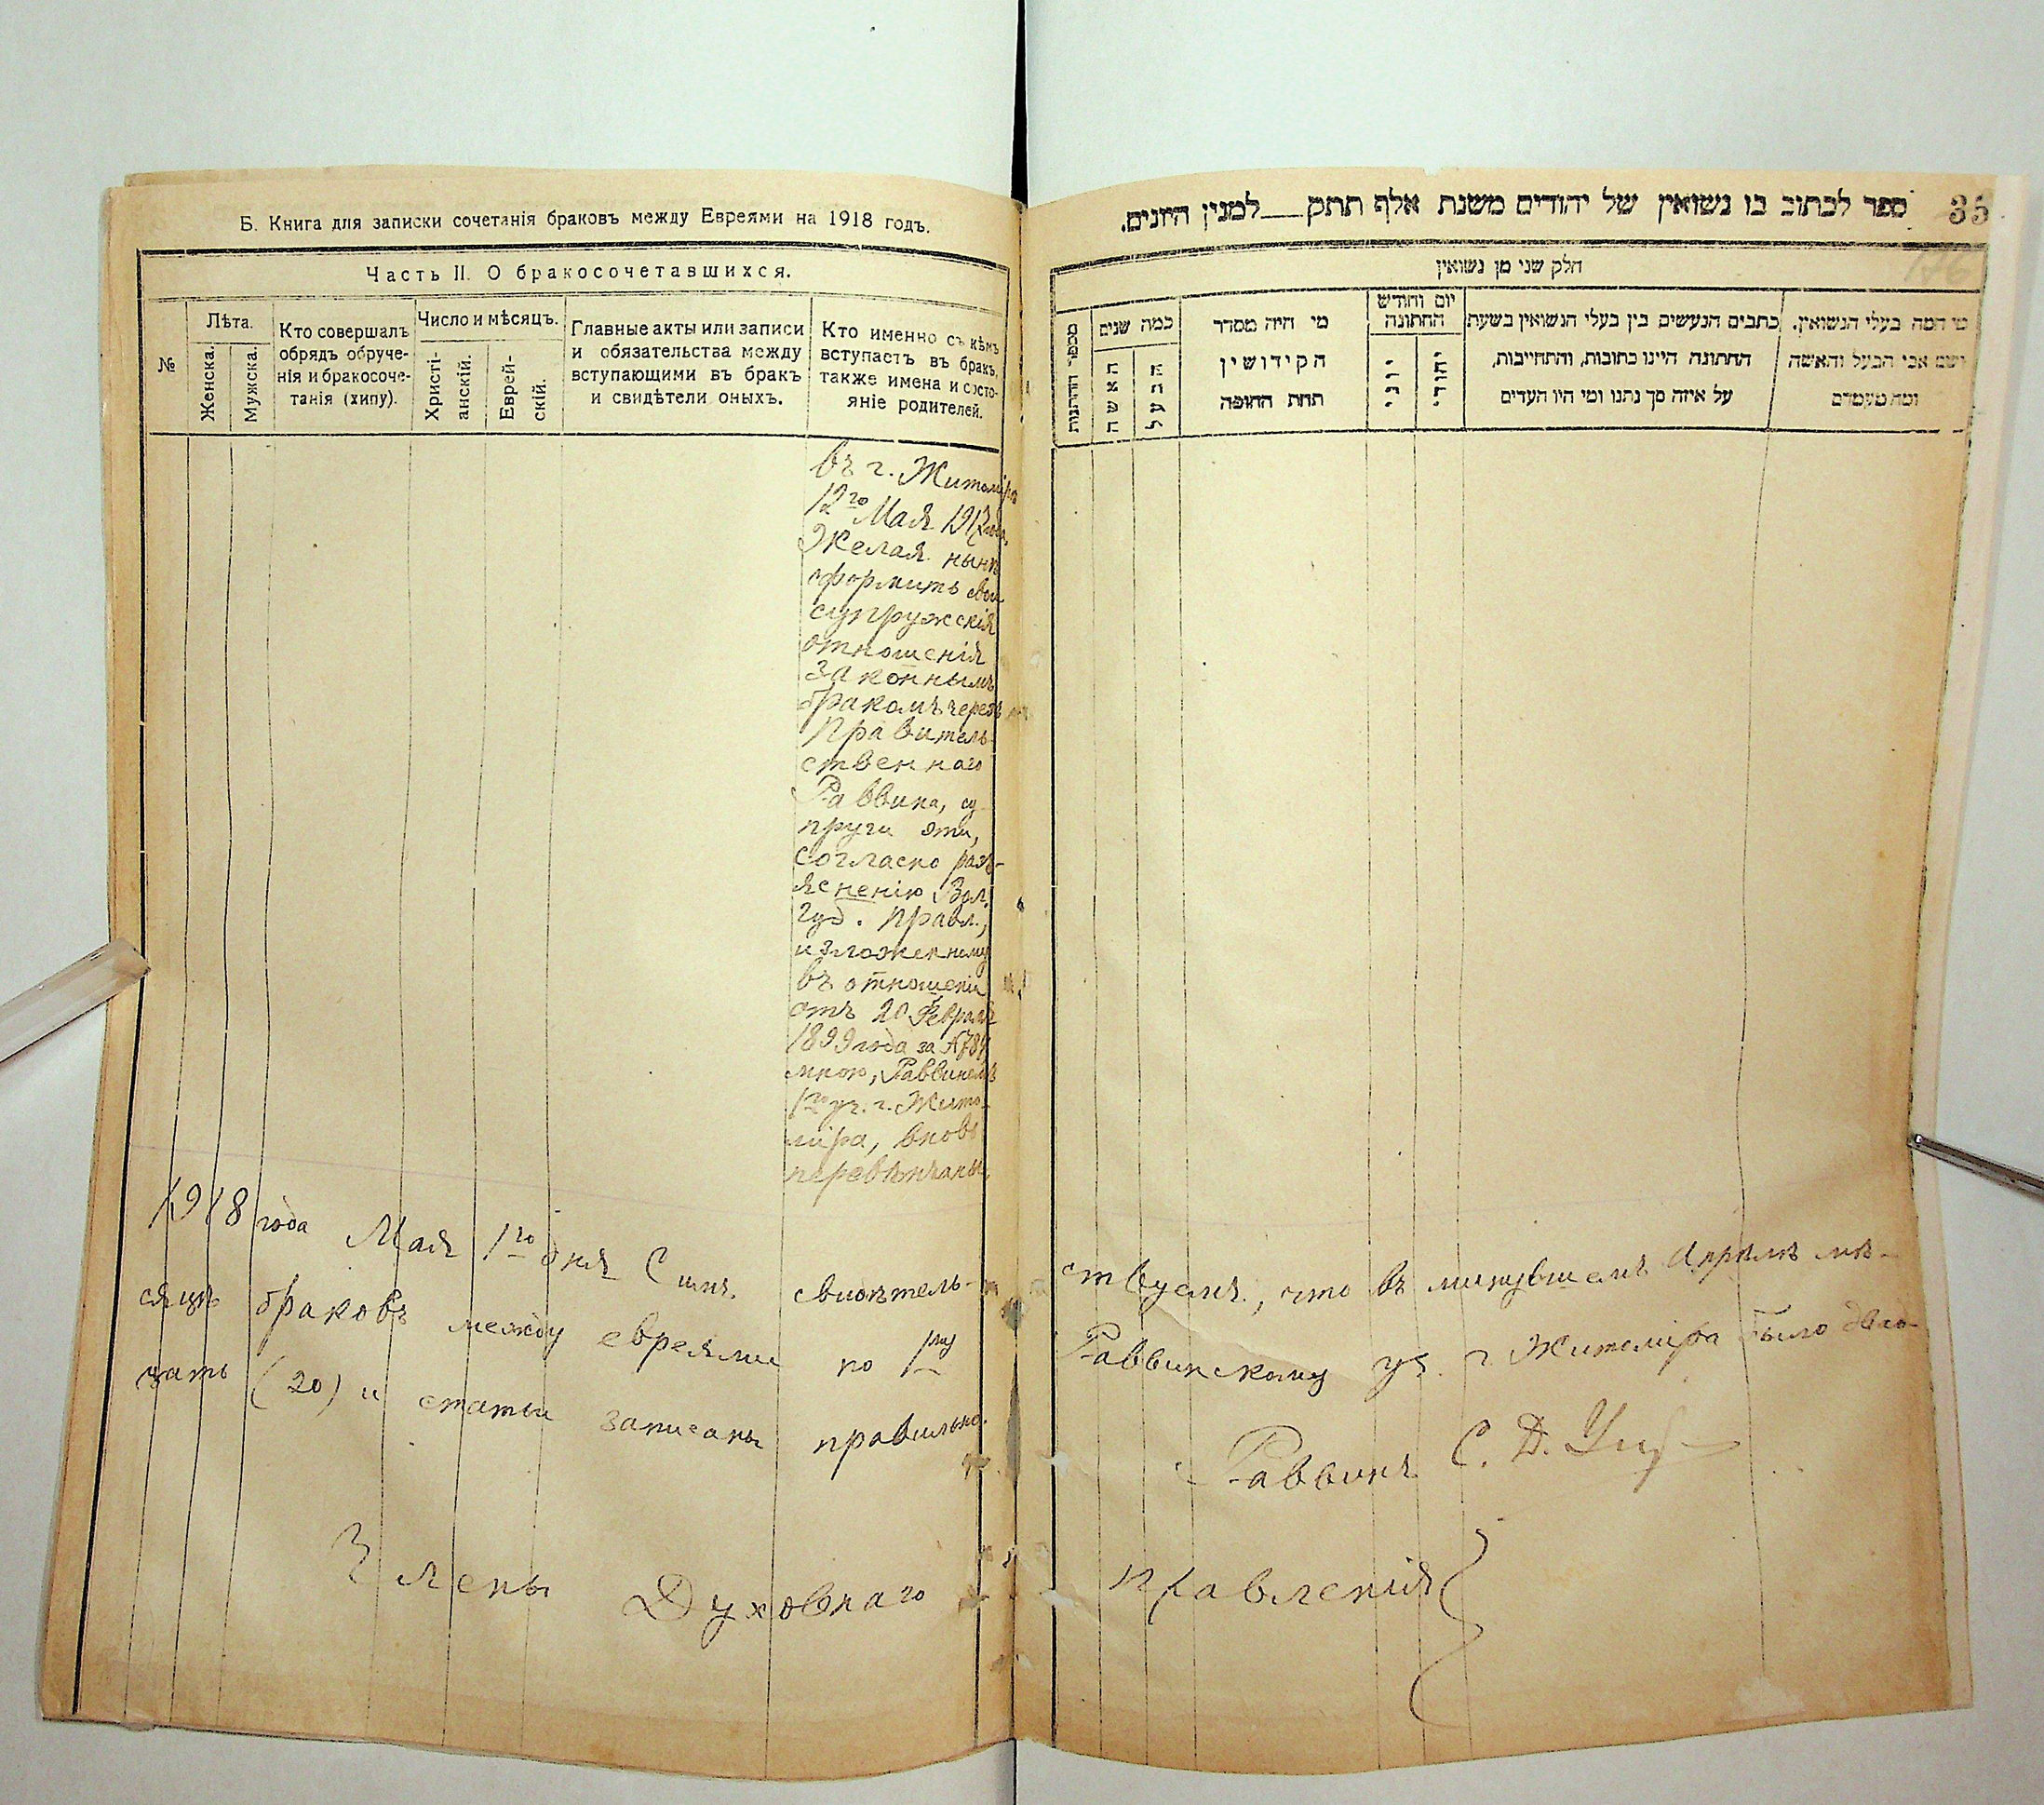 Б. Книга для записки сочетанія браковъ между Евреями на 1918 годъ.
Часть II. О бракосочетавшихся.
№
Лѣта.
Женска.
Мужска.
Кто совершалъ
обрядъ обруче-
нія и бракосоче-
танія (хипу).
Число и мѣсяцъ.
Христі-
анскій.
Еврей-
скій.
Главные акты или записи
и обязательства между
вступающими въ бракъ
и свидѣтели оныхъ.
Кто именно съ кѣмъ
вступаетъ въ бракъ,
также имена и состо-
яніе родителей.
въ г. Житомірѣ
12го Мая 1917 года.
Желая нынѣ
оформить свои
супружскія
отношенія
законнымъ
бракомъ черезъ
Правитель-
ственнаго
Раввина, су-
пруги эти,
согласно разъ-
ясненію Вол.
Губ. Правл.,
изложенному
въ отношеніи
отъ 20 Февраля
1899 года за №
мною, Раввиномъ
1го уч. г. Жито-
міра, вновь
перевѣнчаны.
ספר לכתוב בו נשואין של יהודים משנת אלף תתק__למנין היונים.
35
חלק שני מן נשואין
מספר החתונות
כמה שנים
האשה
הבעל
מי היה מסדר
הקידושין
תחת החופה
יום וחודש
החתונה
יוני
יהודי
כתבים הנעשים בין בעלי הנשואין בשעת
החתונה היינו כתובות, והתחייבות,
על איזה סך נתנו ומי היו העדים
מי המה בעלי הנשואין.
ושם אבי הבעל והאשה
ומה מעמדם
1918 года Мая 1го дня Симъ свидѣтель-ствуемъ, что въ минувшемъ Апрѣлѣ мѣ-
сяцѣ браковъ между евреями по 1му Раввинскому уч. г. Житоміра было двад-
цать (20) и статьи записаны правильно.
Раввинъ С. Д.
Члены Духовнаго Правленія